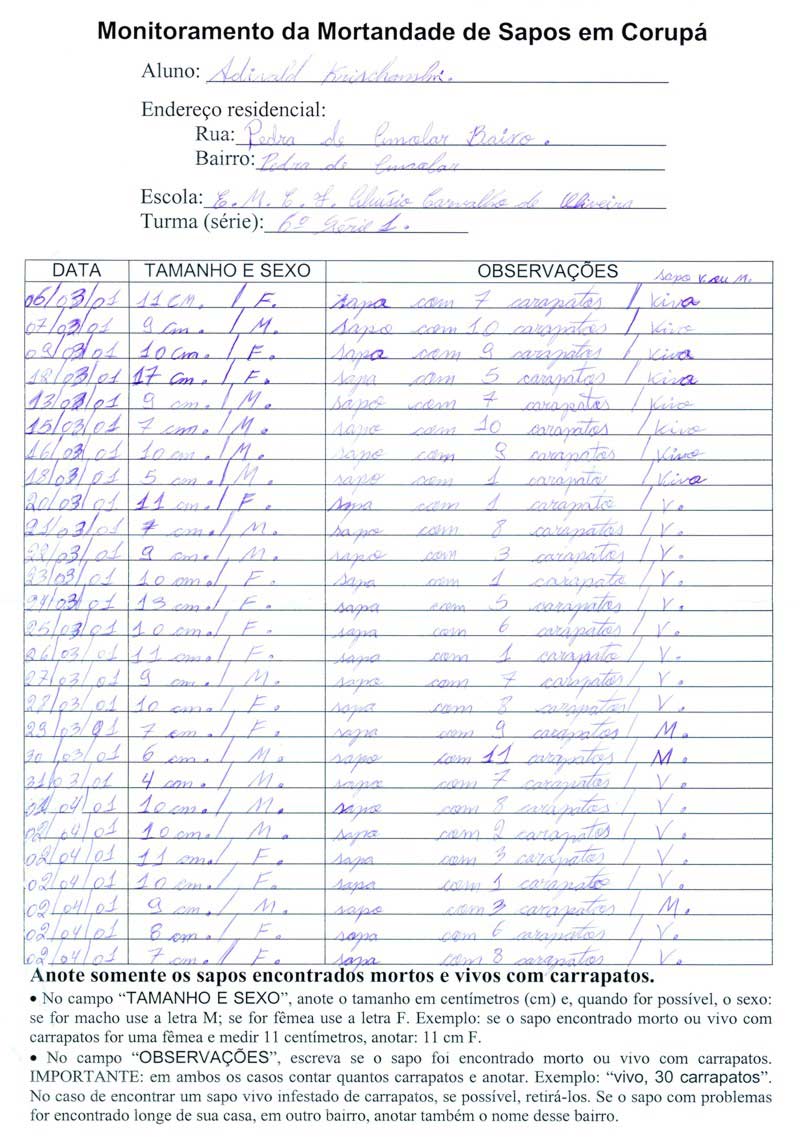 Monitoramento da Mortandade de Sapos em Corupá
Aluno:
Endereço residencial:
Rua: Pedra de Amolar Baixo.
Bairro: Pedra de Amolar
Escola: E. M. E. F. Aluísio Carvalho de Oliveira
Turma (série): 6º Série 1.
DATA TAMANHO E SEXO OBSERVAÇÕES sapo V. ou M.
06/03/01 11 cm. / F. sapa com 7 carapatos / Viva
07/03/01 9 cm. / M. sapo com 10 carapatos / Vivo
09/03/01 10 cm. / F. sapa com 9 carapatos / Viva
/03/01 17 cm. / F. sapa com 5 carapatos / Viva
13/03/01 9 cm. / M. sapo com 7 carapatos / Vivo
15/03/01 7 cm. / M. sapo com 10 carapatos / Vivo
16/03/01 10 cm. / M. sapo com carapatos / Vivo
18/03/01 5 cm. / M. sapo com 1 carapato / Vivo
20/03/01 11 cm. / F. sapa com 1 carapato / V.
21/03/01 7 cm. / M. sapo com 8 carapatos / V.
22/03/01 9 cm. / M. sapo com 3 carapatos / V.
23/03/01 10 cm. / F. sapa com 1 carapato / V.
24/03/01 13 cm. / F. sapa com 5 carapatos / V.
25/03/01 10 cm. / F. sapa com 6 carapatos / V.
26/03/01 11 cm. / F. sapa com 1 carapato / V.
27/03/01 9 cm. / M. sapo com 7 carapatos / V.
28/03/01 10 cm. / F. sapa com 8 carapatos / V.
29/03/01 7 cm. / F. sapa com 9 carapatos / M.
30/03/01 6 cm. / M. sapo com 11 carapatos / M.
31/03/01 4 cm. / M. sapo com 7 carapatos / V.
01/04/01 10 cm. / M. sapo com 8 carapatos / V.
02/04/01 10 cm. / M. sapo com 2 carapatos / V.
02/04/01 11 cm. / F. sapa com 3 carapatos / V.
02/04/01 10 cm. / F. sapa com 1 carapato / V.
02/04/01 9 cm. / M. sapo com 3 carapatos / M.
02/04/01 8 cm. / F. sapa com 6 carapatos / V.
02/04/01 7 cm. / F. sapa com 8 carapatos / V.
Anote somente os sapos encontrados mortos e vivos com carrapatos.
• No campo “TAMANHO E SEXO”, anote o tamanho em centímetros (cm) e, quando for possível, o sexo:
se for macho use a letra M; se for fêmea use a letra F. Exemplo: se o sapo encontrado morto ou vivo com
carrapatos for uma fêmea e medir 11 centímetros, anotar: 11 cm F.
• No campo “OBSERVAÇÕES”, escreva se o sapo foi encontrado morto ou vivo com carrapatos.
IMPORTANTE: em ambos os casos contar quantos carrapatos e anotar. Exemplo: “vivo, 30 carrapatos”.
No caso de encontrar um sapo vivo infestado de carrapatos, se possível, retirá-los. Se o sapo com problemas
for encontrado longe de sua casa, em outro bairro, anotar também o nome desse bairro.